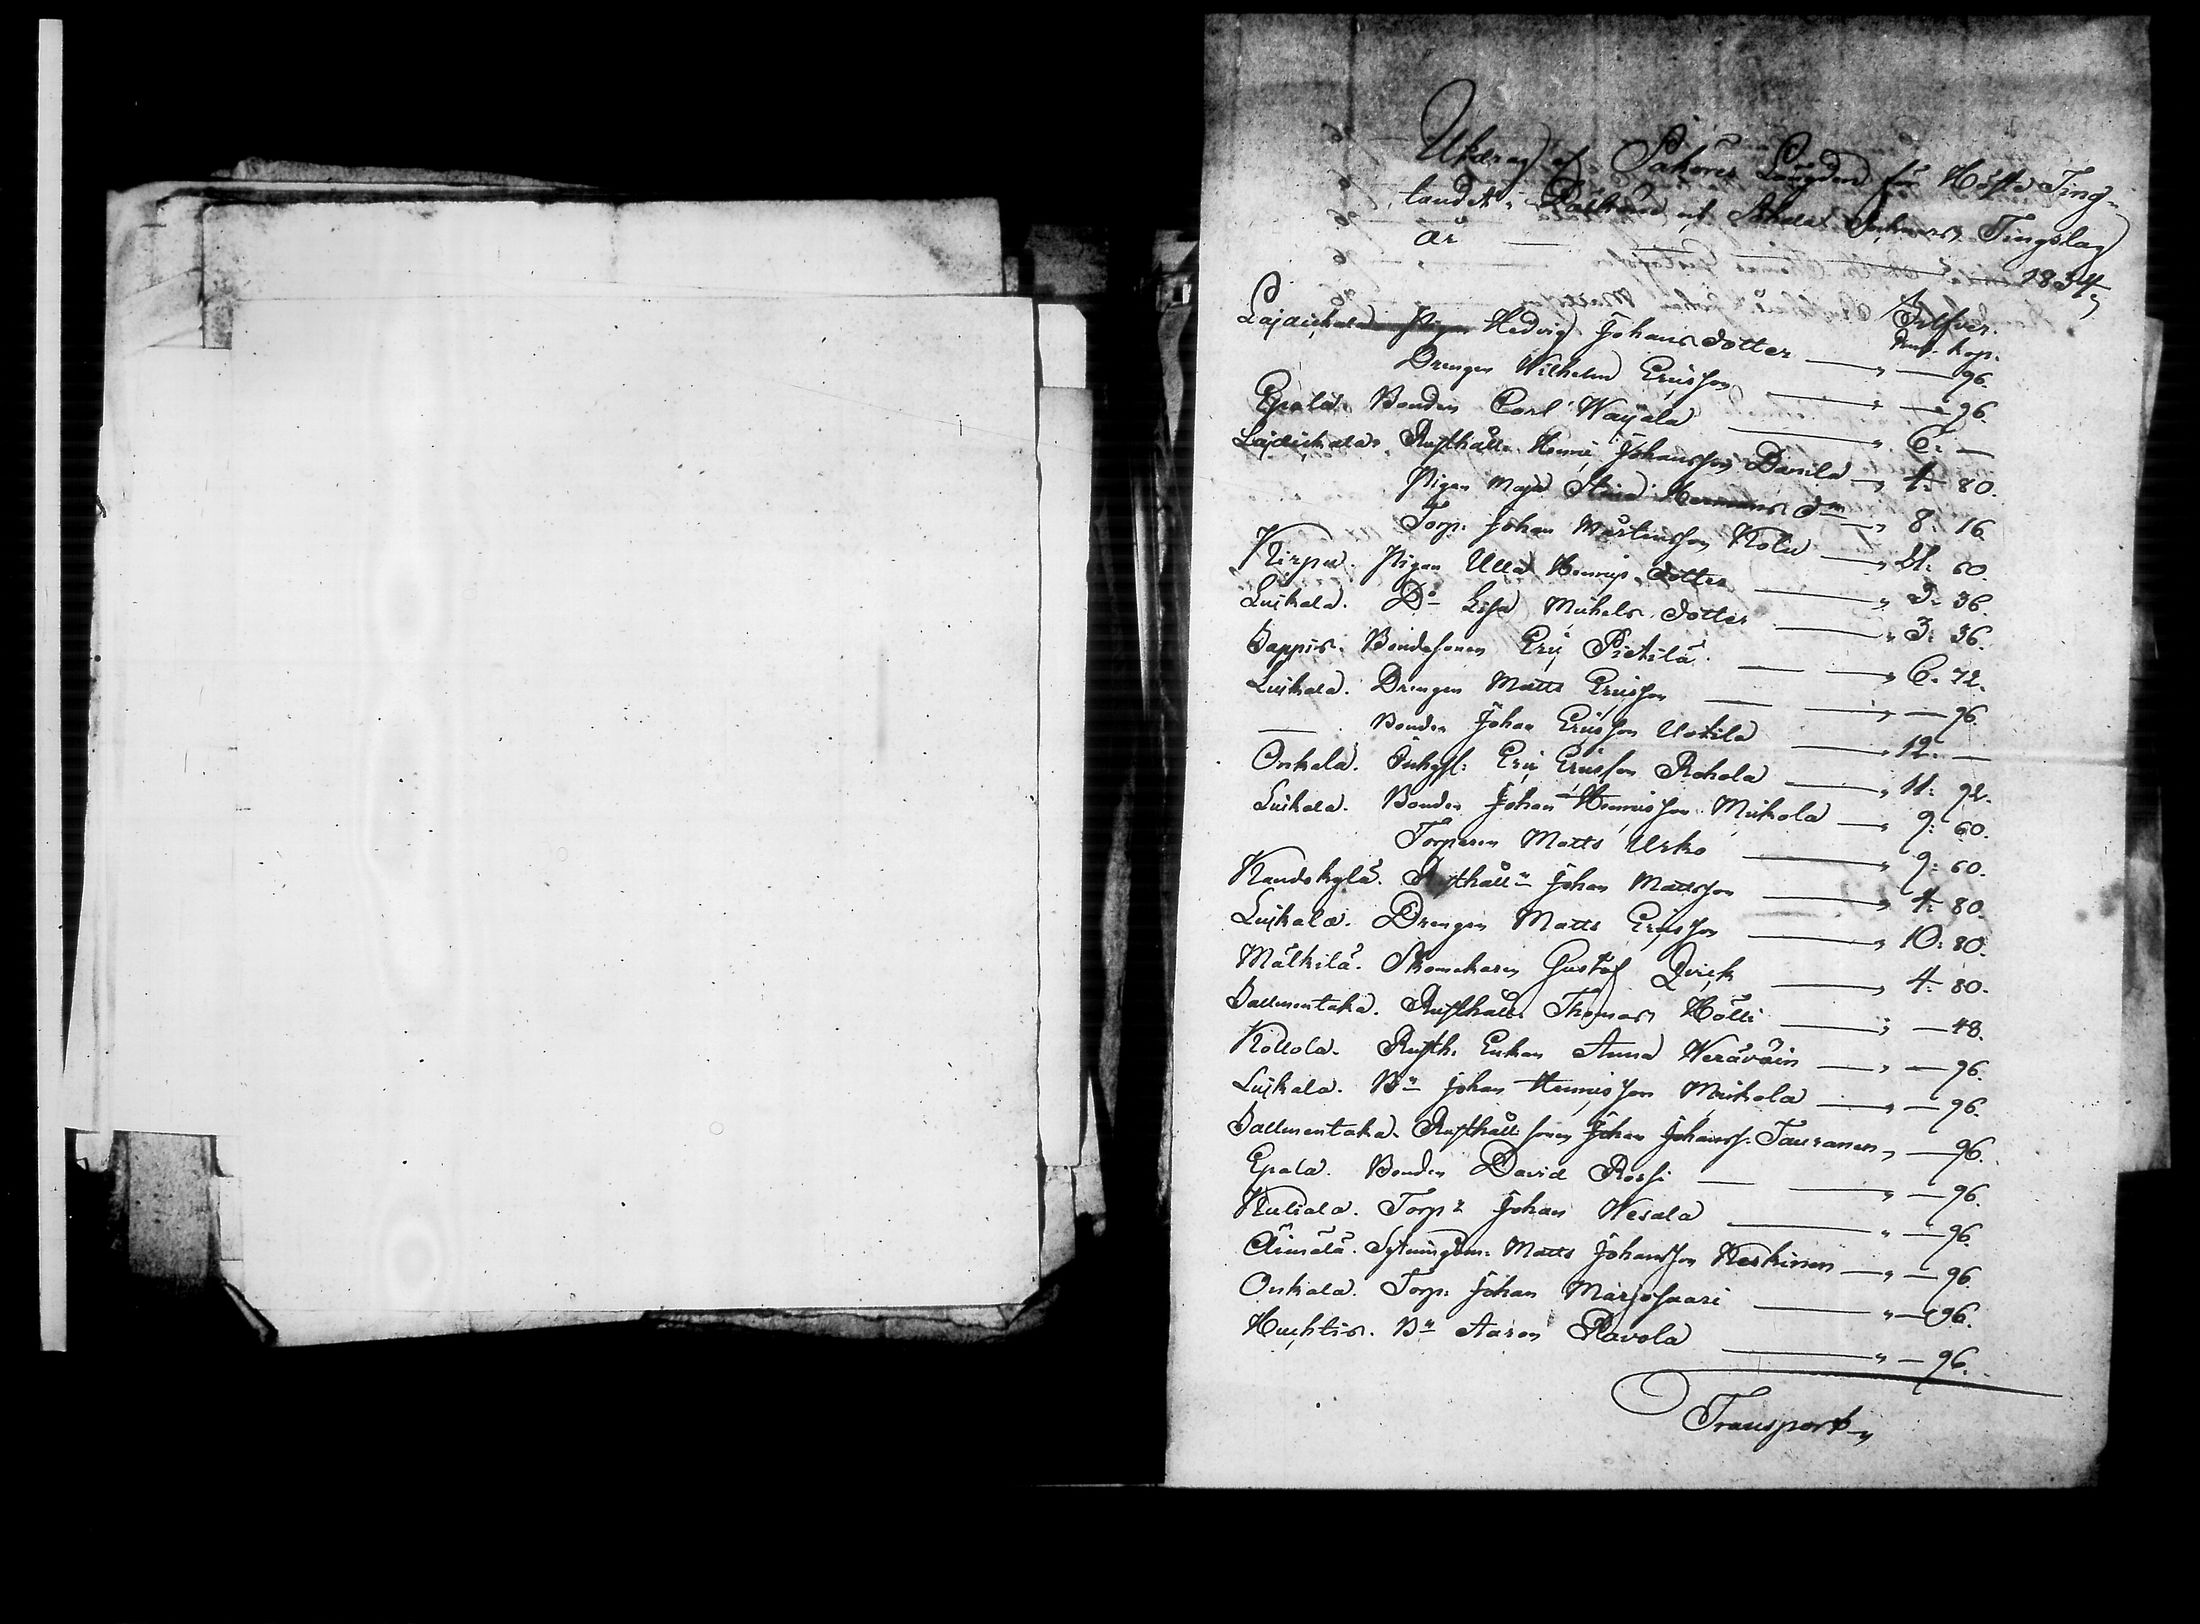 Utdrag af Saköres Längden för Höste Ting-
landet i Tingslag
år 1834.
Silfver.
Rub. kop.
Pigan Hedvig Johans dotter — " — 96.
Drengen Wilhelm Ericsson — " — 96.
Epala. Bonden Carl Wayala — " 6: —
Rusthåll. Henric Johansson Danila — " 4: 80.
Pigan Maja Stina — " 8: 16.
Torp. Johan Mårtensson — " 60.
Kirpu. Pigan Ulla Henrics dotter — " 3: 36.
Luikala. Do Lisa Michels dotter — " 3: 36.
Sappis. Bondesonen Eric Pietilä — " 6: 72.
Luikala. Drengen Matts Ericsson — " — 96.
— Bonden Johan Ericsson Uotila — " 12: —
Onkala. Inhys: Eric Ericsson Rohola — " 11: 92.
Luikala. Bonden Johan Henricsson Mickola — " 9: 60.
Torparen Matts Urko — " 9: 60.
Kandokylä. Rusthåll: Johan Mattsson — " 4: 80.
Luikala. Drengen Matts Ericsson — " 10: 80.
Mälkilä. Skomakaren Gustaf Qvick — " 4: 80.
Sallmentaka. Rusthåll. Thomas Hölli — " — 48.
Kollola. Rusth. Enkan Anna Weräväin — " — 96.
Luikala. Bn Johan Henricsson Mickola — " — 96.
Sallmentaka. Rusthåll. sonen Johan Johanss. Tauranen " — 96.
Epala. Bonden David Rossi — " — 96.
Kuliala. Torp: Johan Wesala — " — 96.
Äimälä. Sytningsm. Matts Johansson Keskinen — " — 96.
Onkala. Torp. Johan Marjosaari — " — 96.
Huchtis. Bn Aaron Ravola — " — 96.
Transport "